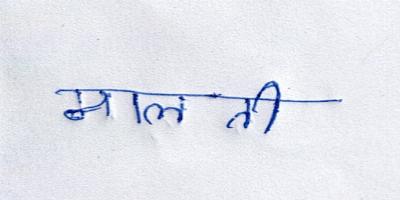 मालती